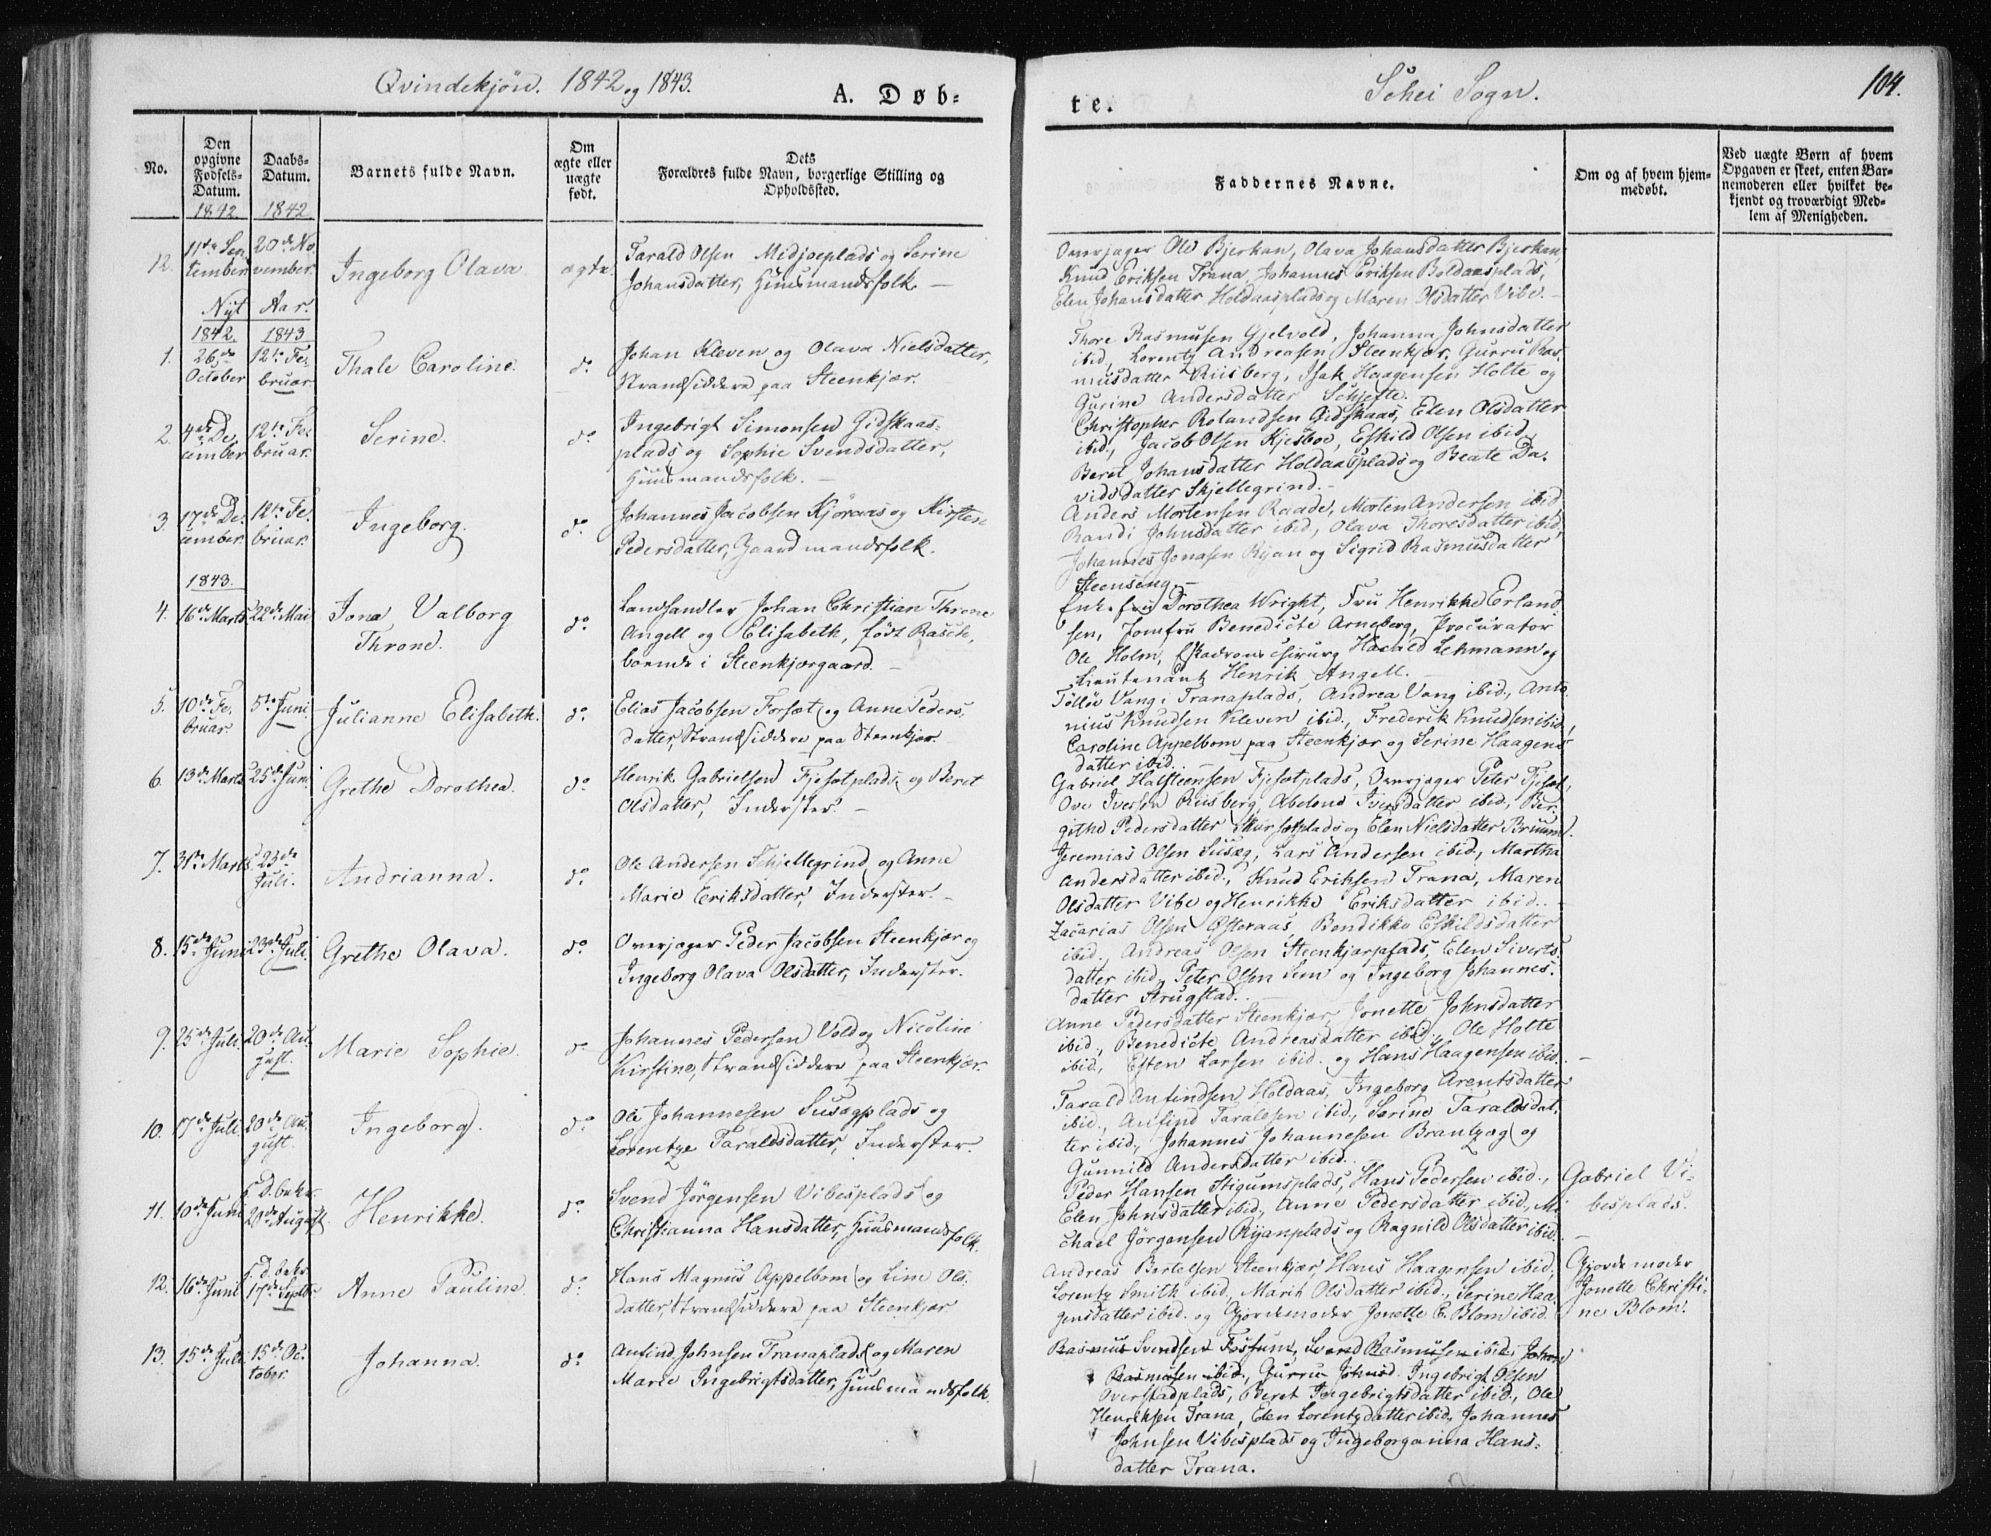 Qvindekjön. 1842 og 1843.
A. Døb-
te.
Schei Sogn.
104.
No.
Den opgivne Fødsels-Datum.
Daabs-Datum.
Barnets fulde Navn.
Om ægte eller uægte født.
Dets Forældres fulde Navn, borgerlige Stilling og Opholdssted.
Faddernes Navne.
Om og af hvem hjem-medøbt.
Ved uægte Børn af hvem Opgaven er skeet, enten Bar-nemoderen eller hvilket be-kjendt og troværdigt Med-lem af Menigheden.
1842 1842
12. 11te Sep- 20de No-
tember vember Ingeborg Olava. ægte.
Tarald Olsen Midjoeplads og Serine
Johansdatter, Huusmandsfolk. —
Overjæger Ole Bjerkan, Olava Johansdatter Bjerkan,
Knud Eriksen Trana, Johannes Eriksen Boldaasplads,
Elen Johansdatter Holdaasplads og Maren Olsdatter Vibe. —
Nyt Aar.
1842. 1843
1. 26de 12te Fe-
October bruar. Thale Caroline. do.
Johan Kleven og Olava Nielsdatter,
Strandsiddere paa Steenkjær.
Thore Rasmusen Gjelvold, Johanna Johnsdatter
ibid, Lorentz Andreasen Steenkjær, Gurru Ras-
musdatter Riisberg, Isak Haagensen Holte og
Gurine Andersdatter Schjefte.
2. 4de De- 12te Fe-
cember bruar. Serine. do.
Ingebrigt Simonsen Gidskaas-
plads og Sophie Svendsdatter,
Huusmandsfolk. —
Christopher Rolandsen Gidskaas, Elen Olsdatter
ibid., Jacob Olsen Kjesboe, Eskild Olsen ibid,
Beret Johansdatter Holdaasplads og Beate Da-
vidsdatter Skjellegrind. —
3. 17de De- 12te Fe-
cember. bruar. Ingeborg. do.
Johannes Jacobsen Kjöraas og Kirsten
Pedersdatter, Gaardmandsfolk.
Anders Mortensen Raade, Morten Andersen ibid,
Randi Johnsdatter ibid, Olava Thoresdatter ibid,
Johannes Jonasen Ryan og Sigrid Rasmusdatter
Steenseng. —
1843.
4. 16de Marts 22de Mai Jona Valborg
Throne. do.
Landhandler Johan Christian Throne
Angell og Elisabeth, født Rasch,
boende i Steenkjærgaard. —
Enkefru Dorothea Wright, Fru Henrikke Erland-
sen, Jomfru Benedicte Arneberg, Procurator
Ole Holm, Eskadronschirurg Harald Lehmann og
Lieutenant Henrik Angell. —
5. 10de Fe- 5te Juni.
bruar. Julianne Elisabeth. do.
Elias Jacobsen Forsæt og Anne Peders-
datter, Strandsiddere paa Steenkjær.
Tölløv Vang i Tranaplads, Andrea Vang ibid., Anto-
nius Knudsen Kleven ibid., Frederik Knudsen ibid,
Caroline Appelbom paa Steenkjær og Serine Haagens-
datter ibid.
6. 13de Marts 25de Juni Grethe Dorothea. do.
Henrik Gabrielsen Fjesetplads og Beret
Olsdatter, Inderster. —
Gabriel Halsteensen Fjesetplads, Overjæger Peter Fjeset,
Ove Iversen Riisberg, Abelone Iversdatter ibid, Ber-
githe Pedersdatter Skursetplads og Elen Nielsdatter Bruum.
7. 31te Marts 23de
Juli. Andrianna. do.
Ole Andersen Schjellegrind og Anne
Marie Eriksdatter, Inderster. —
Jeremias Olsen Susæg, Lars Andersen ibid, Martha
Andersdatter ibid., Knud Eriksen Trana, Maren
Olsdatter Vibe og Henrikke Eriksdatter ibid. —
8. 15de Juni 23de Juli. Grethe Olava. do.
Overjæger Peder Jacobsen Steenkjær og
Ingeborg Olava Olsdatter, Inderster.
Zacarias Olsen Østeraas, Bendikke Eskildsdatter
ibid., Andreas Olsen Steenkjærplads, Elen Siverts-
datter ibid, Peter Olsen Sem og Ingeborg Johannes-
datter Strugstad.
9. 25de Juli. 20de Au-
gust. Marie Sophie. do
Johannes Pedersen Vold og Nicoline
Kirstine, Strandsiddere paa Steenkjær.
Anne Pedersdatter Steenkjær, Jonette Johnsdatter
ibid., Benedicte Andreasdatter ibid., Ole Holte
ibid, Esten Larsen ibid. og Hans Haagensen ibid. —
10. 17de Juli 20de Au-
gust. Ingeborg. do.
Ole Johannesen Susægplads og
Lorentze Taraldsdatter, Inderster.
Tarald Anfindsen Holdaas, Ingeborg Arentsdatter
ibid., Anfind Taraldsen ibid., Serine Taraldsdat-
ter ibid., Johannes Johannesen Brantzæg og
Gunnild Andersdatter ibid.
11. 10de Juni D. bekr.
20de August. Henrikke. do.
Svend Jörgensen Vibesplads og
Christianna Hansdatter, Huusmandsfolk.
Peder Hansen Stigumsplads, Hans Pedersen ibid.,
Elen Johnsdatter ibid, Anne Pedersdatter ibid., Mi-
chael Jörgensen Ryanplads og Ragnild Olsdatter ibid. —
Gabriel Vi-
besplads.
12. 16de Juni D. bekr.
17de Septbr. Anne Pauline. do.
Hans Magnus Appelbom og Lim Ols-
datter, Strandsiddere paa Steenkjær
Andreas Bertelsen Steenkjær, Hans Haagensen ibid,
Lorentz Smith ibid, Marit Olsdatter ibid., Serine Haa-
gensdatter ibid. og Gjordemoder Jonette C. Blom ibid.
Gjordemoder
Jonette Christi-
ne Blom.
13. 15de Juli 15de Oc-
tober. Johanna. do.
Anfind Johnsen Tranaplads og Maren
Marie Ingebrigtsdatter, Huusmandsfolk.
Rasmus Svendsen Fossum, Svend Rasmusen ibid, Johan
Rasmusen ibid, Gurru Johnsd. Ingebrigt Olsen
Overstadplads, Beret Ingebrigtsdatter ibid., Ole
Henriksen Trana, Elen Lorentzdatter ibid, Johannes
Johnsen Vibesplads og Ingeborganna Hans-
datter Trana.